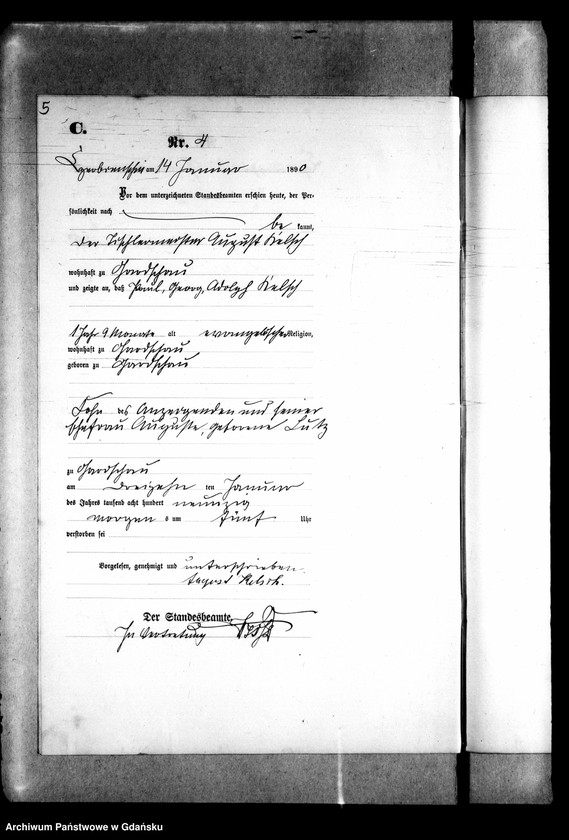 5
C.
Nr. 4
am 14 Januar 1890
Vor dem unterzeichneten Standesbeamten erschien heute, der Per-
sönlichkeit nach
be kannt,
der Tischlermeister August Kelsch
wohnhaft zu Gardschau
und zeigte an, daß Paul, Georg, Adolph Kelsch
1 Jahr 9 Monate alt evangelischer Religion,
wohnhaft zu Gardschau
geboren zu Gardschau
Sohn des Anzeigenden und seiner
Ehefrau Auguste, geborene Lutz
zu Gardschau
am dreizehn ten Januar
des Jahres tausend acht hundert neunzig
morgen s um fünf Uhr
verstorben sei
Vorgelesen, genehmigt und unterschrieben.
August Kelsch.
Der Standesbeamte.
In Vertretung
Archiwum Państwowe w Gdańsku